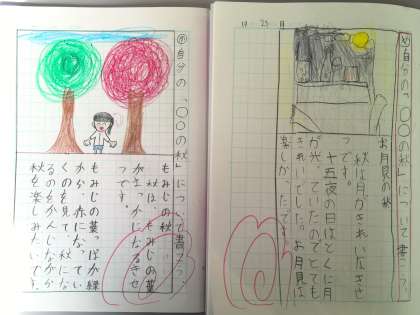 自分の「〇〇の秋」について書こう。
お月見の秋
秋は月がきれいなきせ
つです。
十五夜の日はとくに月
が光っていたのでとても
きれいでした。お月見は
楽しかったです。
自分の「〇〇の秋」について書こう。
もみじの秋
秋は、もみじの葉
がまっかになるきせ
つです。
もみじの葉っぱが緑
から、赤になってい
くのを見て、秋にな
秋を楽しみたいです。